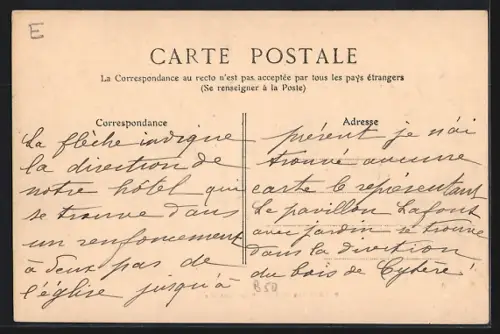 E
CARTE POSTALE
La Correspondance au recto n'est pas acceptée par tous les pays étrangers
(Se renseigner à la Poste)
Correspondance
La flèche indique
la direction de
notre hôtel qui
se trouve dans
un renfoncement
à deux pas de
l'église jusqu'à
Adresse
présent je n'ai
trouvé aucune
carte le représentant
Le pavillon Lafont
avec jardin se trouve
dans la direction
du bois de Cythère
B50